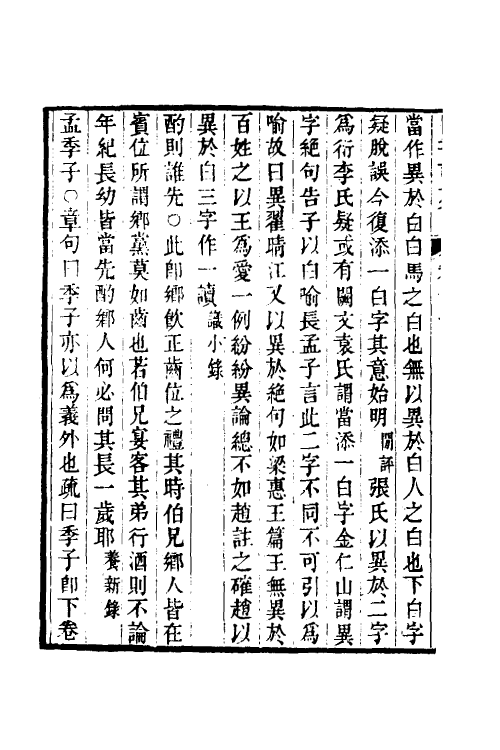 當作異於白白馬之白也無以異於白人之白也下白字
疑脫誤今復添一白字其意始明閒評張氏以異於二字
爲衍李氏疑或有闕文袁氏謂當添一白字金仁山謂異
字絕句告子以白喻長孟子言此二字不同不可引以爲
喻故曰異翟晴江又以異於絕句如梁惠王篇王無異於
百姓之以王爲愛一例紛紛異論總不如趙註之確趙以
異於白三字作一讀識小錄
酌則誰先○此卽鄉飮正齒位之禮其時伯兄鄉人皆在
賓位所謂鄉黨莫如齒也若伯兄宴客其弟行酒則不論
年紀長幼皆當先酌鄉人何必問其長一歲耶養新錄
孟季子○章句曰季子亦以爲義外也疏曰季子卽下卷